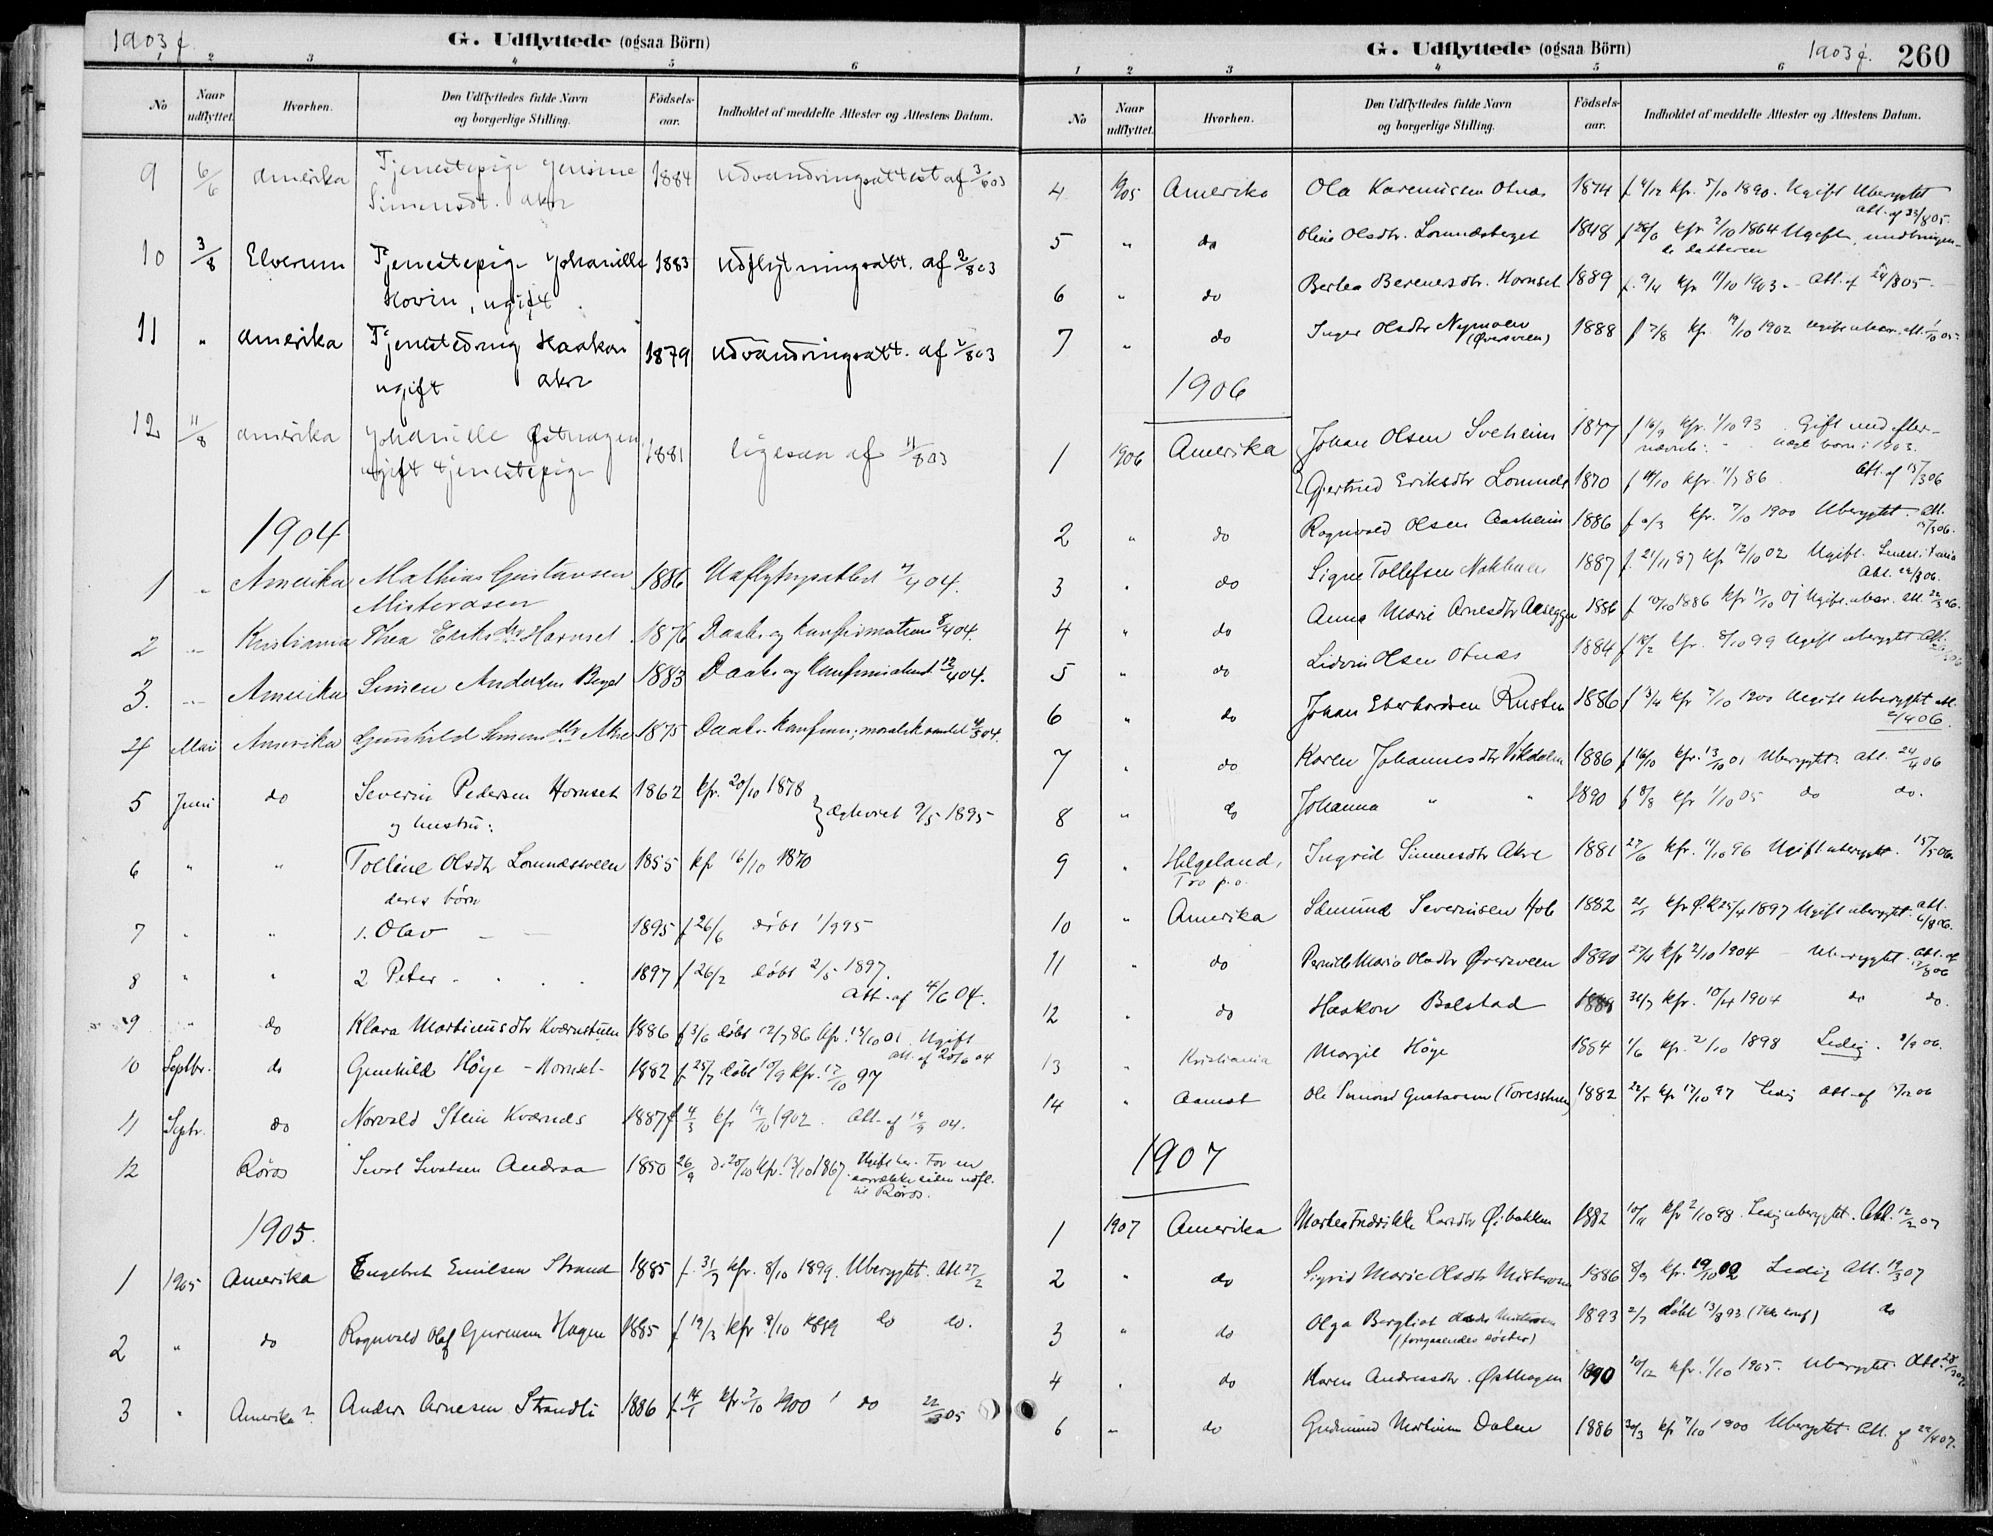 1903 f.
G. Udflyttede (ogsaa Börn)
1 2 3 4 5 6
No Naar udflyttet. Hvorhen. Den Udflyttedes fulde Navn og borgerlige Stilling. Födsels-aar. Indholdet af meddelte Attester og Attestens Datum.
9 6/6 Amerika Tjenestepige Jensine 1884 udvandringsattest af 3/6 03
Simensdt. Akre
10 3/8 Elverum Tjenestepige Johanille 1883 udflytningsatt. af 2/8 03
Hovin, ugift
11 " Amerika Tjenestedreng Haakon 1879 udvandringsatt. af 2/8 03
ugift Akre
12 11/8 Amerika Johanille Østhagen 1881 ligesaa af 11/8 03
ugift tjenestepige
1904
1 " Amerika Mathias Gustavsen 1886 Udflytngsattest 04.
Misteraasen
2 " Kristiania Thea Eriksdtr Hornset 1876 Daabs og Konfirmations 8/4 04.
3. " Amerika Simen Andersen Berget 1883 Daabs og Konfirmat 12/4 04.
4 Mai Amerika Gunhild Simensdtr Akre 1875 Daabs. Konfirm; moralsk vandel 04.
5 Juni do Severin Pedersen Hornset 1862 kfr. 20/10 1878
og hustru: ægteviet 9/5 1895
6 " " Tolline Olsdtr Lomnæsveen 1855 kfr 16/10 1870
deres børn
7 " " 1. Olav 1895 f 26/6 døbt 1/9 95
8 " " 2 Peter 1897 f 26/2 døbt 2/5 1897.
Att. af 4/6 04.
9 " do Klara Martinusdtr Kværnstuen 1886 f 3/6 døbt 12/7 86 kfr. 13/10 01. Ugift
att. af 20/6 04
10 Septbr. do Gunhild Höye - Hornset - 1882 f 25/7 døbt 10/9 kfr. 17/10 97
11 Septr. do Norvald Stein Kværnes 1887 f 4/3 kfr 19/10 1902. Att. af 19/9 04.
12 Röros Sivat Sivatsen Andraa 1850 26/9 d. 20/10 kfr. 13/10 1867. Ugift her. For en
aarrække siden udfl.
til Röros.
1905.
1 1905 Amerika Engebret Emilsen Strand 1885 f. 31/7 kfr. 8/10 1899. Uberygtet. Att 27/2
2 " do Ragnvald Olaf Gurenson Hagen 1885 f 19/3 kfr 8/10 1899 do do.
3 " Amerika Anders Arnesen Strandli 1886 f 14/1 kfr. 7/10 1900 do 22/3 05
G. Udflyttede (ogsaa Börn)
1903 f.
260
1 2 3 4 5 6
No Naar udflyttet. Hvorhen. Den Udflyttedes fulde Navn og borgerlige Stilling. Födsels-aar. Indholdet af meddelte Attester og Attestens Datum.
4 1905 Amerika Ola Karenusen Otnes 1874 f 4/12 kfr. 5/10 1890. Ugift Uberygtet
att. af 22/8 05.
5 " do Oline Olsdtr. Lomnæsberget 1848 f 28/6 kfr 2/10 1864 Ugift,
datteren
6 " do Berthea Bernersdtr. Hornset 1889 f. 9/4 kfr 11/10 1903. Att. af 24/8 05.
7 " do Inger Olsdtr Nymoen 1888 f 7/8 kfr. 19/10 1902 ugift uber. att. 1/10 05
(Øversveen)
1906
1 1906 Amerika Johan Olsen Solheim 1877 f 16/9 kfr. 1/10 93. Gift med efter-
nævnte. 1903.
Gjertrud Eriksdtr Lomnæs 1870 f 14/10 kfr. 11/7 86. Att. af 15/3 06
2 " do Ragnvald Olsen Aasheim 1886 f 9/3 kfr. 7/10 1900 Uberygtet. Att.
15/3 06.
3 " do Signe Tollefsen Nakken 1887 f. 21/11 87 kfr 12/10 02 Ugift.
Att. 22/3 06.
4 " do Anna Marie Arnesdtr Aaseggen 1886 f 10/10 1886 kfr 13/10 01 Ugift. uber. Att. 22/3 06.
5 " do Lidvin Olsen Otnæs 1884 f 18/2 kfr. 8/10 99 Ugift uberygtet Att.
6 " do Johan Eberhardsen Rusten 1886 f 3/4 kfr 7/10 1900 Ugift uberygtet att.
2/4 06.
7 " do Karen Johannesdtr Vikdalen 1886 f 16/10 kfr. 13/10 01 Uberygtet. att. 24/4 06
8 " do Johanna " " 1890 f 8/8 kfr 1/10 05 do do.
9 " Helgeland, Ingrid Simensdtr Akre 1881 27/6 kfr. 11/10 96 Ugift uberygtet. 15/5 06.
Tro p.o.
10 " Amerika Edmund Severinsen Hole 1882 21/1 kfr Ø.R. 25/4 1897 Ugift uberygtet. att.
6/8 06.
11 " do Pernille Maria Olsdtr Øversveen 1890 27/4 kfr 2/10 1904 Uberygtet. Att. af
12/8 06
12 " do Haakon Bolstad 1889 kfr. 10/4 1904 do do.
13 " Kristiania Margit Höye 1884 1/6 kfr. 2/10 1898 Ledig. 8/9 06.
14 " Aamot Ole Simond Gustavsen (Toresstuen) 1882 22/5 kfr 17/10 97 Ledig att. af 7/12 06
1907
1 1907 Amerika Marthea Fredrikke Larsdtr Øibakken 1882 10/11 kfr 2/10 98. Ledig uberygtet. Att. 12/2 07
2 " do Sigrid Marie Olsdtr Misteraasen 1886 8/9 kfr. 19/10 02 Ledig Att. 19/3 07
3 " do Olga Bergliot Olsdtr Misteraasen 1893 2/7 døbt 13/8 93 (Ikke konf) do
(foregaaendes söster)
4 " do Karen Andreasdtr. Østhagen 1890 10/12 kfr. 1/10 1905. Uberygtet. Att. 28/
6 " do Gudmund Martinsen Dalen 1886 30/3 kfr 7/10 1900 Uberygtet. Att. af 22/4 07.